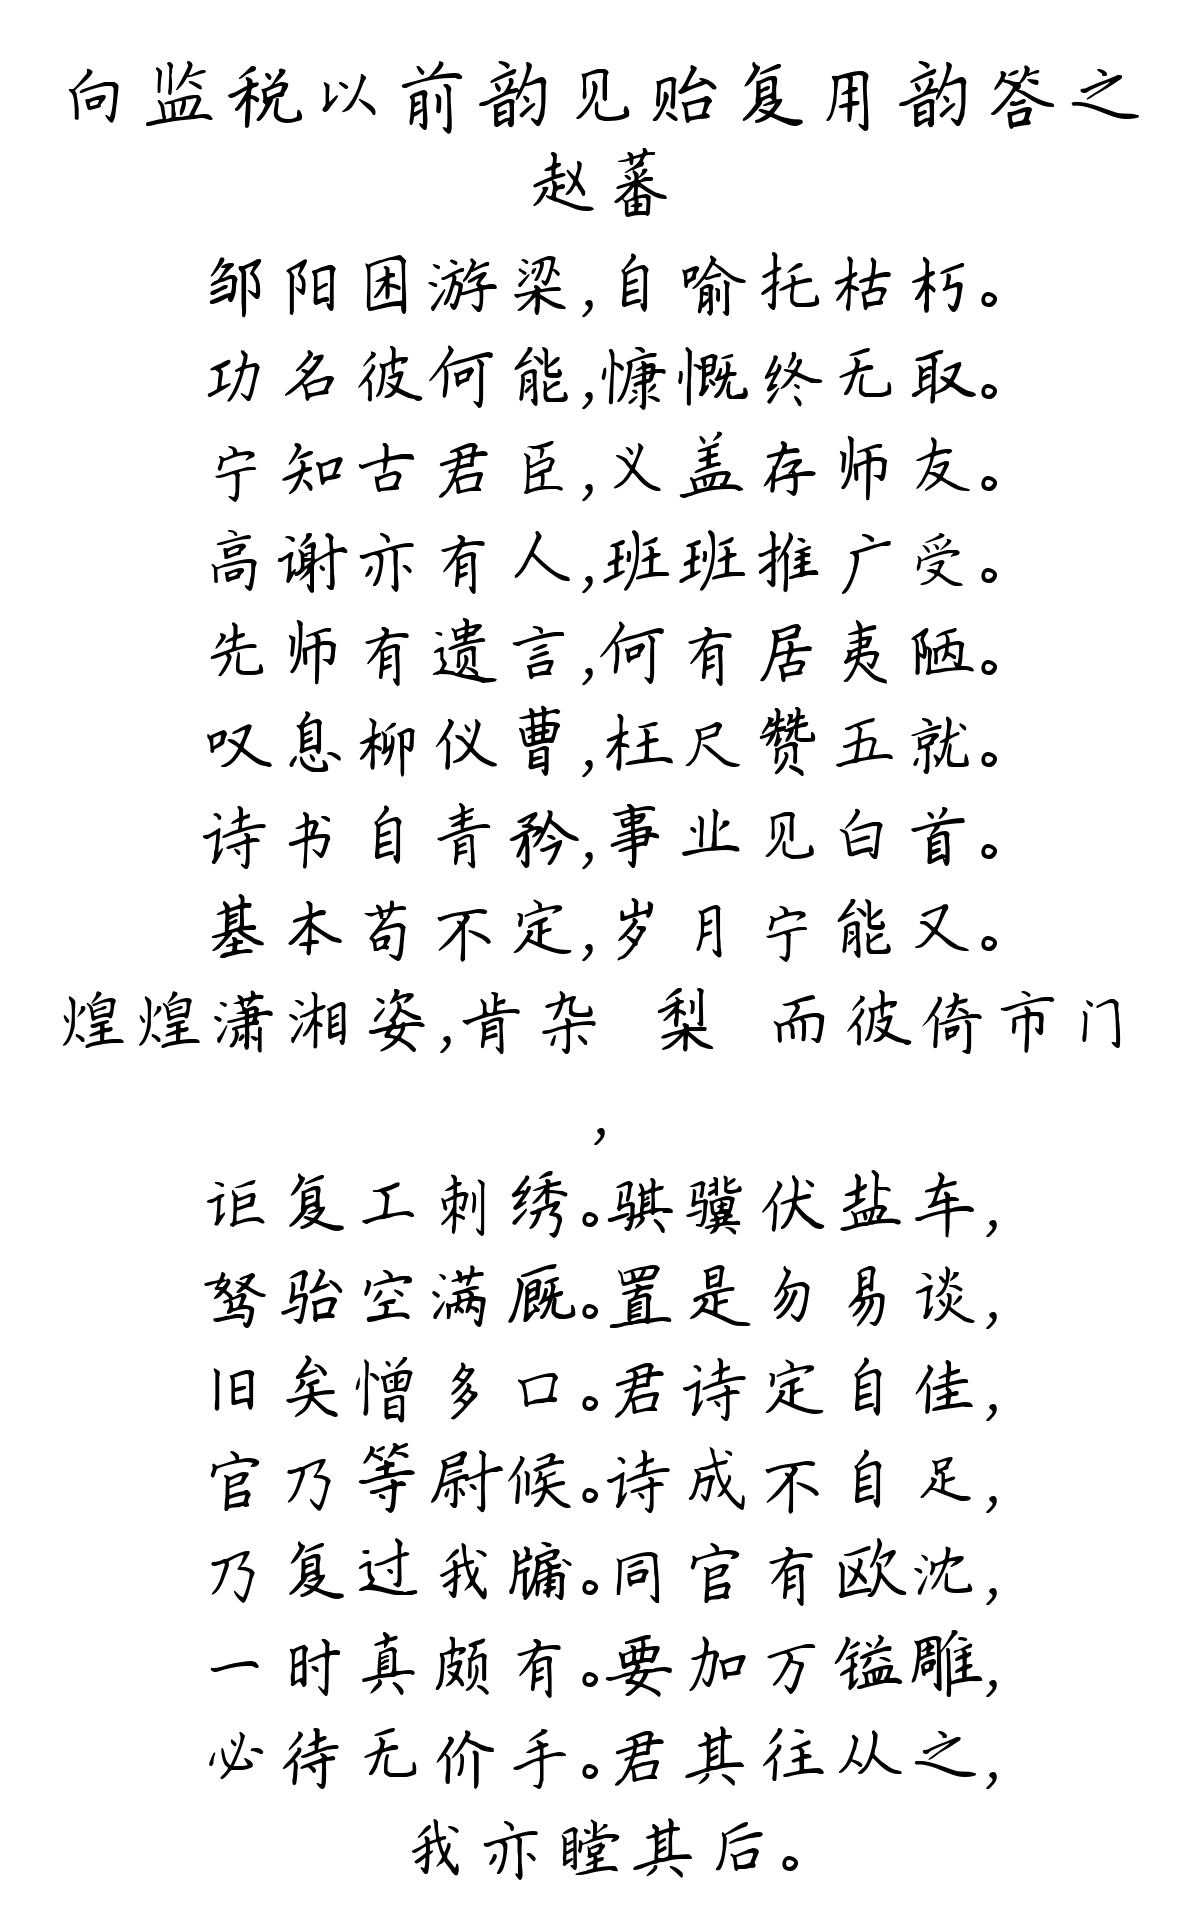 向监税以前韵见贻复用韵答之
赵蕃
邹阳困游梁,自喻托枯朽。
功名彼何能,慷慨终无取。
宁知古君臣,义盖存师友。
高谢亦有人,班班推广受。
先师有遗言,何有居夷陋。
叹息柳仪曹,枉尺赞五就。
诗书自青矜,事业见白首。
基本苟不定,岁月宁能又。
煌煌潇湘姿,肯杂 梨 而彼倚市门
,
讵复工刺绣。骐骥伏盐车,
驽骀空满厩。置是勿易谈,
旧矣憎多口。君诗定自佳,
官乃等尉候。诗成不自足,
乃复过我牖。同官有欧沈,
一时真颇有。要加万镒雕,
必待无价手。君其往从之,
我亦瞠其后。